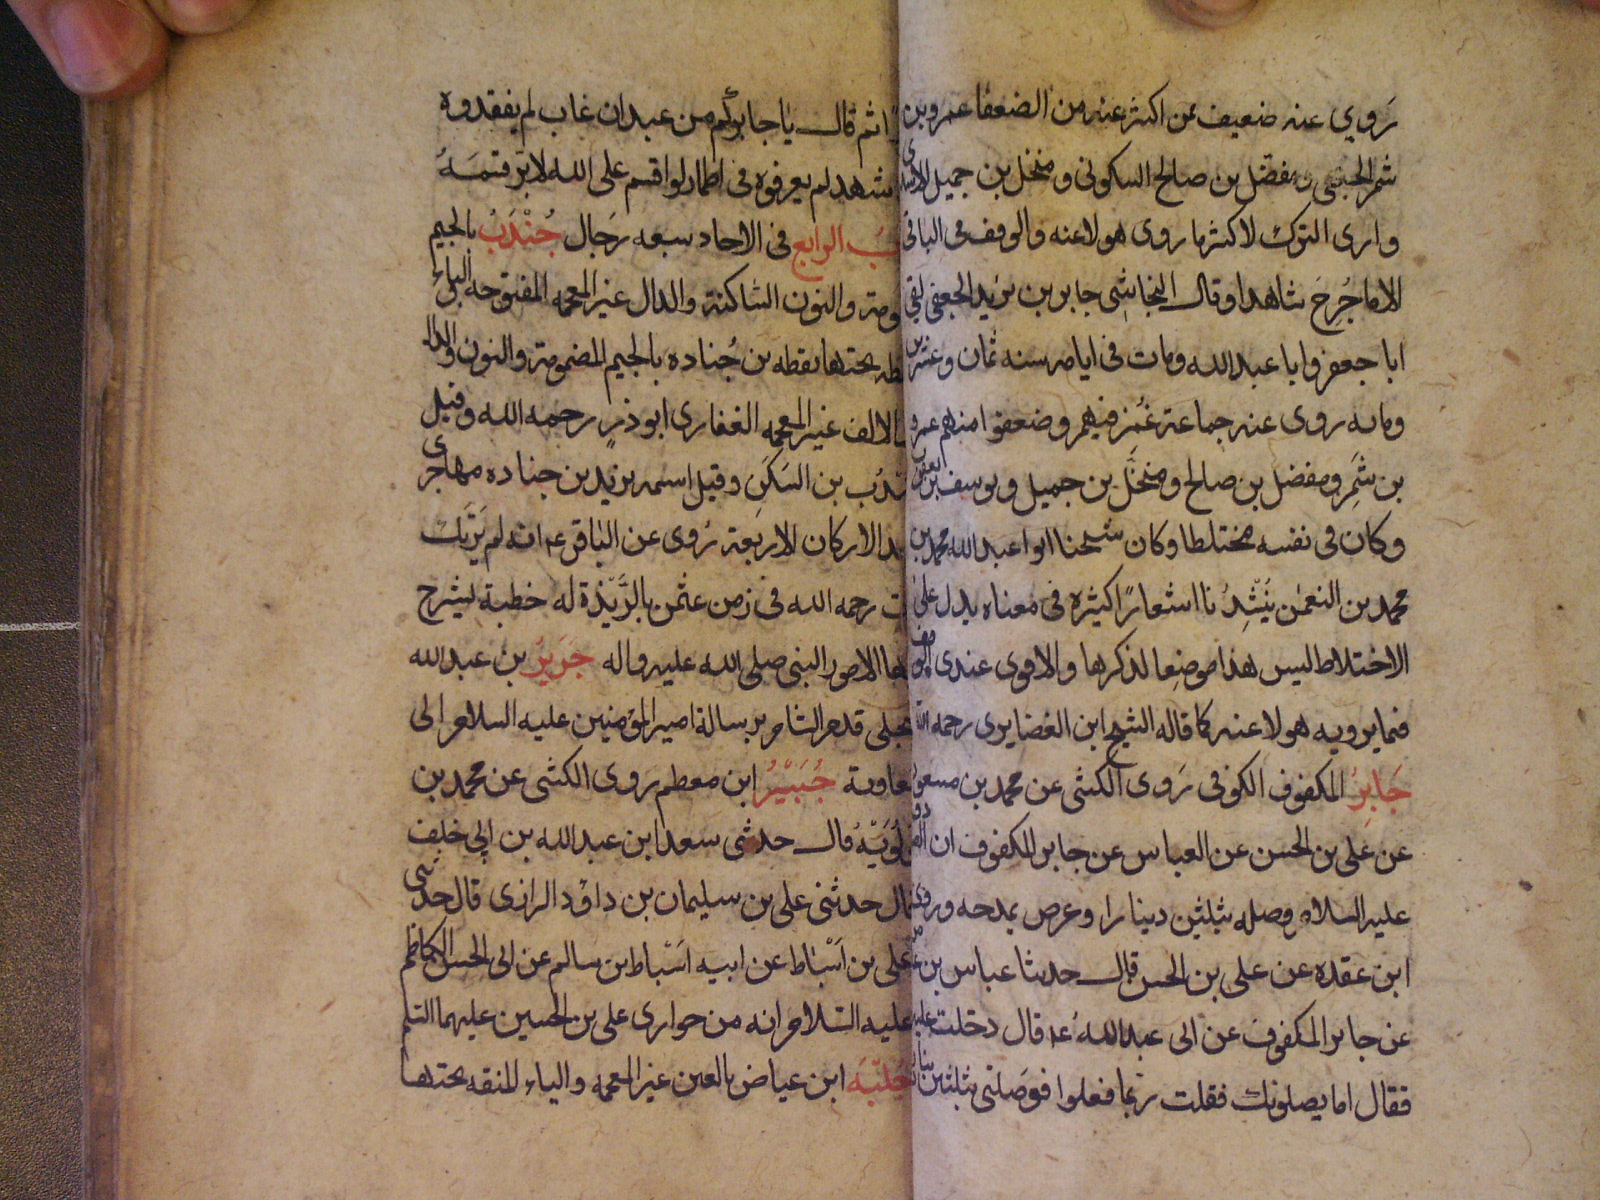 رَوي عنه ضعيف ممن اكثر عنه من الضعفا عمرو بن
شمر الجعفي ومفضل بن صالح السكوني ومنخل بن جميل الاسدي
وارى الترك لاكثر ما روى هولا عنه والوقف فى الباقى
الا ما جُرِحَ شاهدا وقال النجاشي جابر بن يزيد الجعفي لقي
ابا جعفر وابا عبد الله ومات فى ايامه سنه ثمان وعشرين
ومائه روى عنه جماعة غُمز فيهم وضعفوا منهم عمرو
بن شَمِر ومفضل بن صالح ومنخَّل بن جميل ويوسف بن يعقوب
وكان فى نفسه مختلطا وكان شيخنا ابوا عبد الله محمد بن
محمد بن النعمٰن يُنشِدُنا اشعارًا كثيرة فى معناه يدل على
الاختلاط ليس هذا موضعا لذكرها والاقوى عندى الوقف
فيما يرويه هولا عنه كما قاله الشيخ ابن الغضايرى رحمه الله
جَابِرُ المكفوف الكوفى رَوى الكشى عن محمد بن مسعود
عن على بن الحسن عن العباس عن جابر المكفوف ان
عليه السلام وصله بثلثين دينارا وعرض بمدحه وروى
ابن عقده عن على بن الحسن قال حدثنا عباس بن
عن جابر المكفوف عن ابى عبد الله ع قال دخلت عليه
فقال اما يصلونك فقلت ربما فعلوا فوصلنى بثلثين دينارا
ثم قال يا جابر كم من عبد ان غاب لم يفقدوه
شهد لم يعرفوه فى اطمار لو اقسم على الله لابرّ قسَمَهُ
الرابع فى الاحاد سبعه رَجال جُنْدَبُ بالجيم
والنون السّاكنة والدال غير المعجمه المفتوحه والباء
تحتها نقطه بن جُناده بالجيم المضمومة والنون والدال
الالف غير المعجمه الغفارى ابو ذر رحمه الله وقيل
جندب بن السَكَنِ وقيل اسمه بريد بن جناده مهاجرى
الاركان الاربعة رُوى عن الباقر ع انه لم يَرْتَدّ
رحمه الله فى زمن عثمٰن بالرَّبْذة له خطبة يشرح
الامور النبى صلى الله عليه واله جَرِيرُ بن عبد الله
قدم الشام برسالة امير المؤمنين عليه السلام الى
معاوية جُبَيْرُ ابن مطعم روى الكشى عن محمد بن
قولُوَيْهُ قال حدثنى سعد ابن عبد الله بن ابي خلف
قال حدثنى على بن سليمان بن داوٗد الرازى قال حدثنى
على بن اَسْبٰاط عن ابيه اَسْباط بن سالم عن ابى الحسن الكاظم
عليه السّلام انه من حوارى على بن الحسين عليهما السّلم
جُلْبَه ابن عياض بالعين غير المعجمه والياء المنقطه تحتها